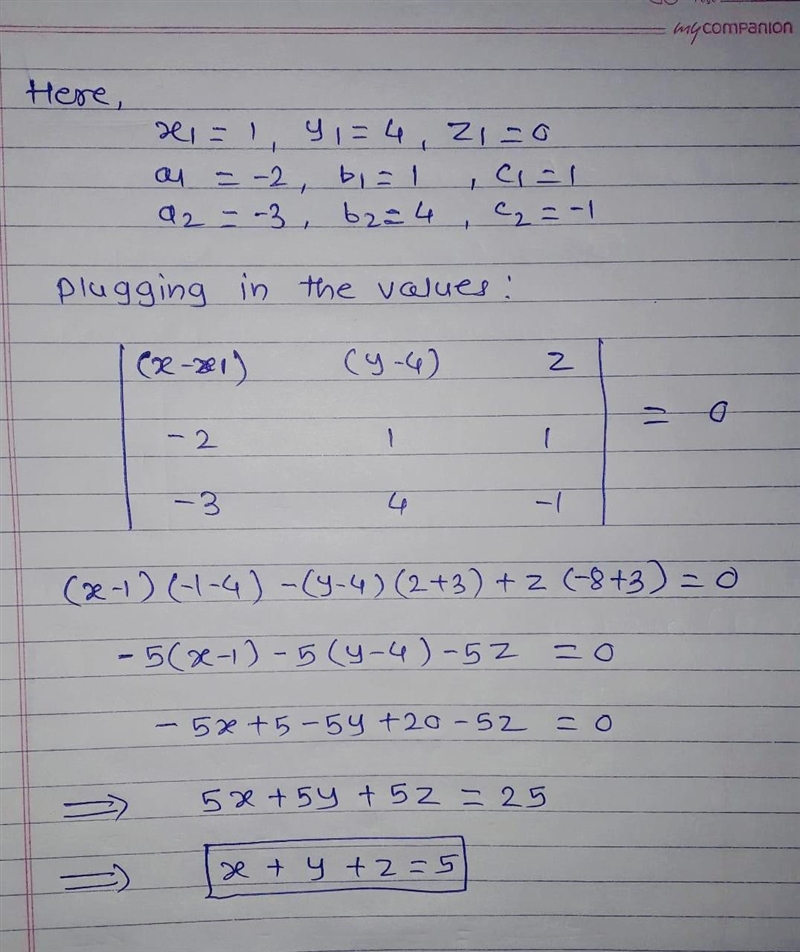 mycompanion
Here,
x1 = 1, y1 = 4, z1 = 0
a1 = -2, b1 = 1, c1 = 1
a2 = -3, b2 = 4, c2 = -1
plugging in the values:
|(x-x1) (y-4) z|
|-2 1 1| = 0
|-3 4 -1|
(x-1)(-1-4) -(y-4)(2+3) + z(-8+3) = 0
-5(x-1) -5(y-4) -5z = 0
-5x+5-5y+20-5z = 0
⟹ 5x+5y+5z = 25
⟹ x+y+z=5